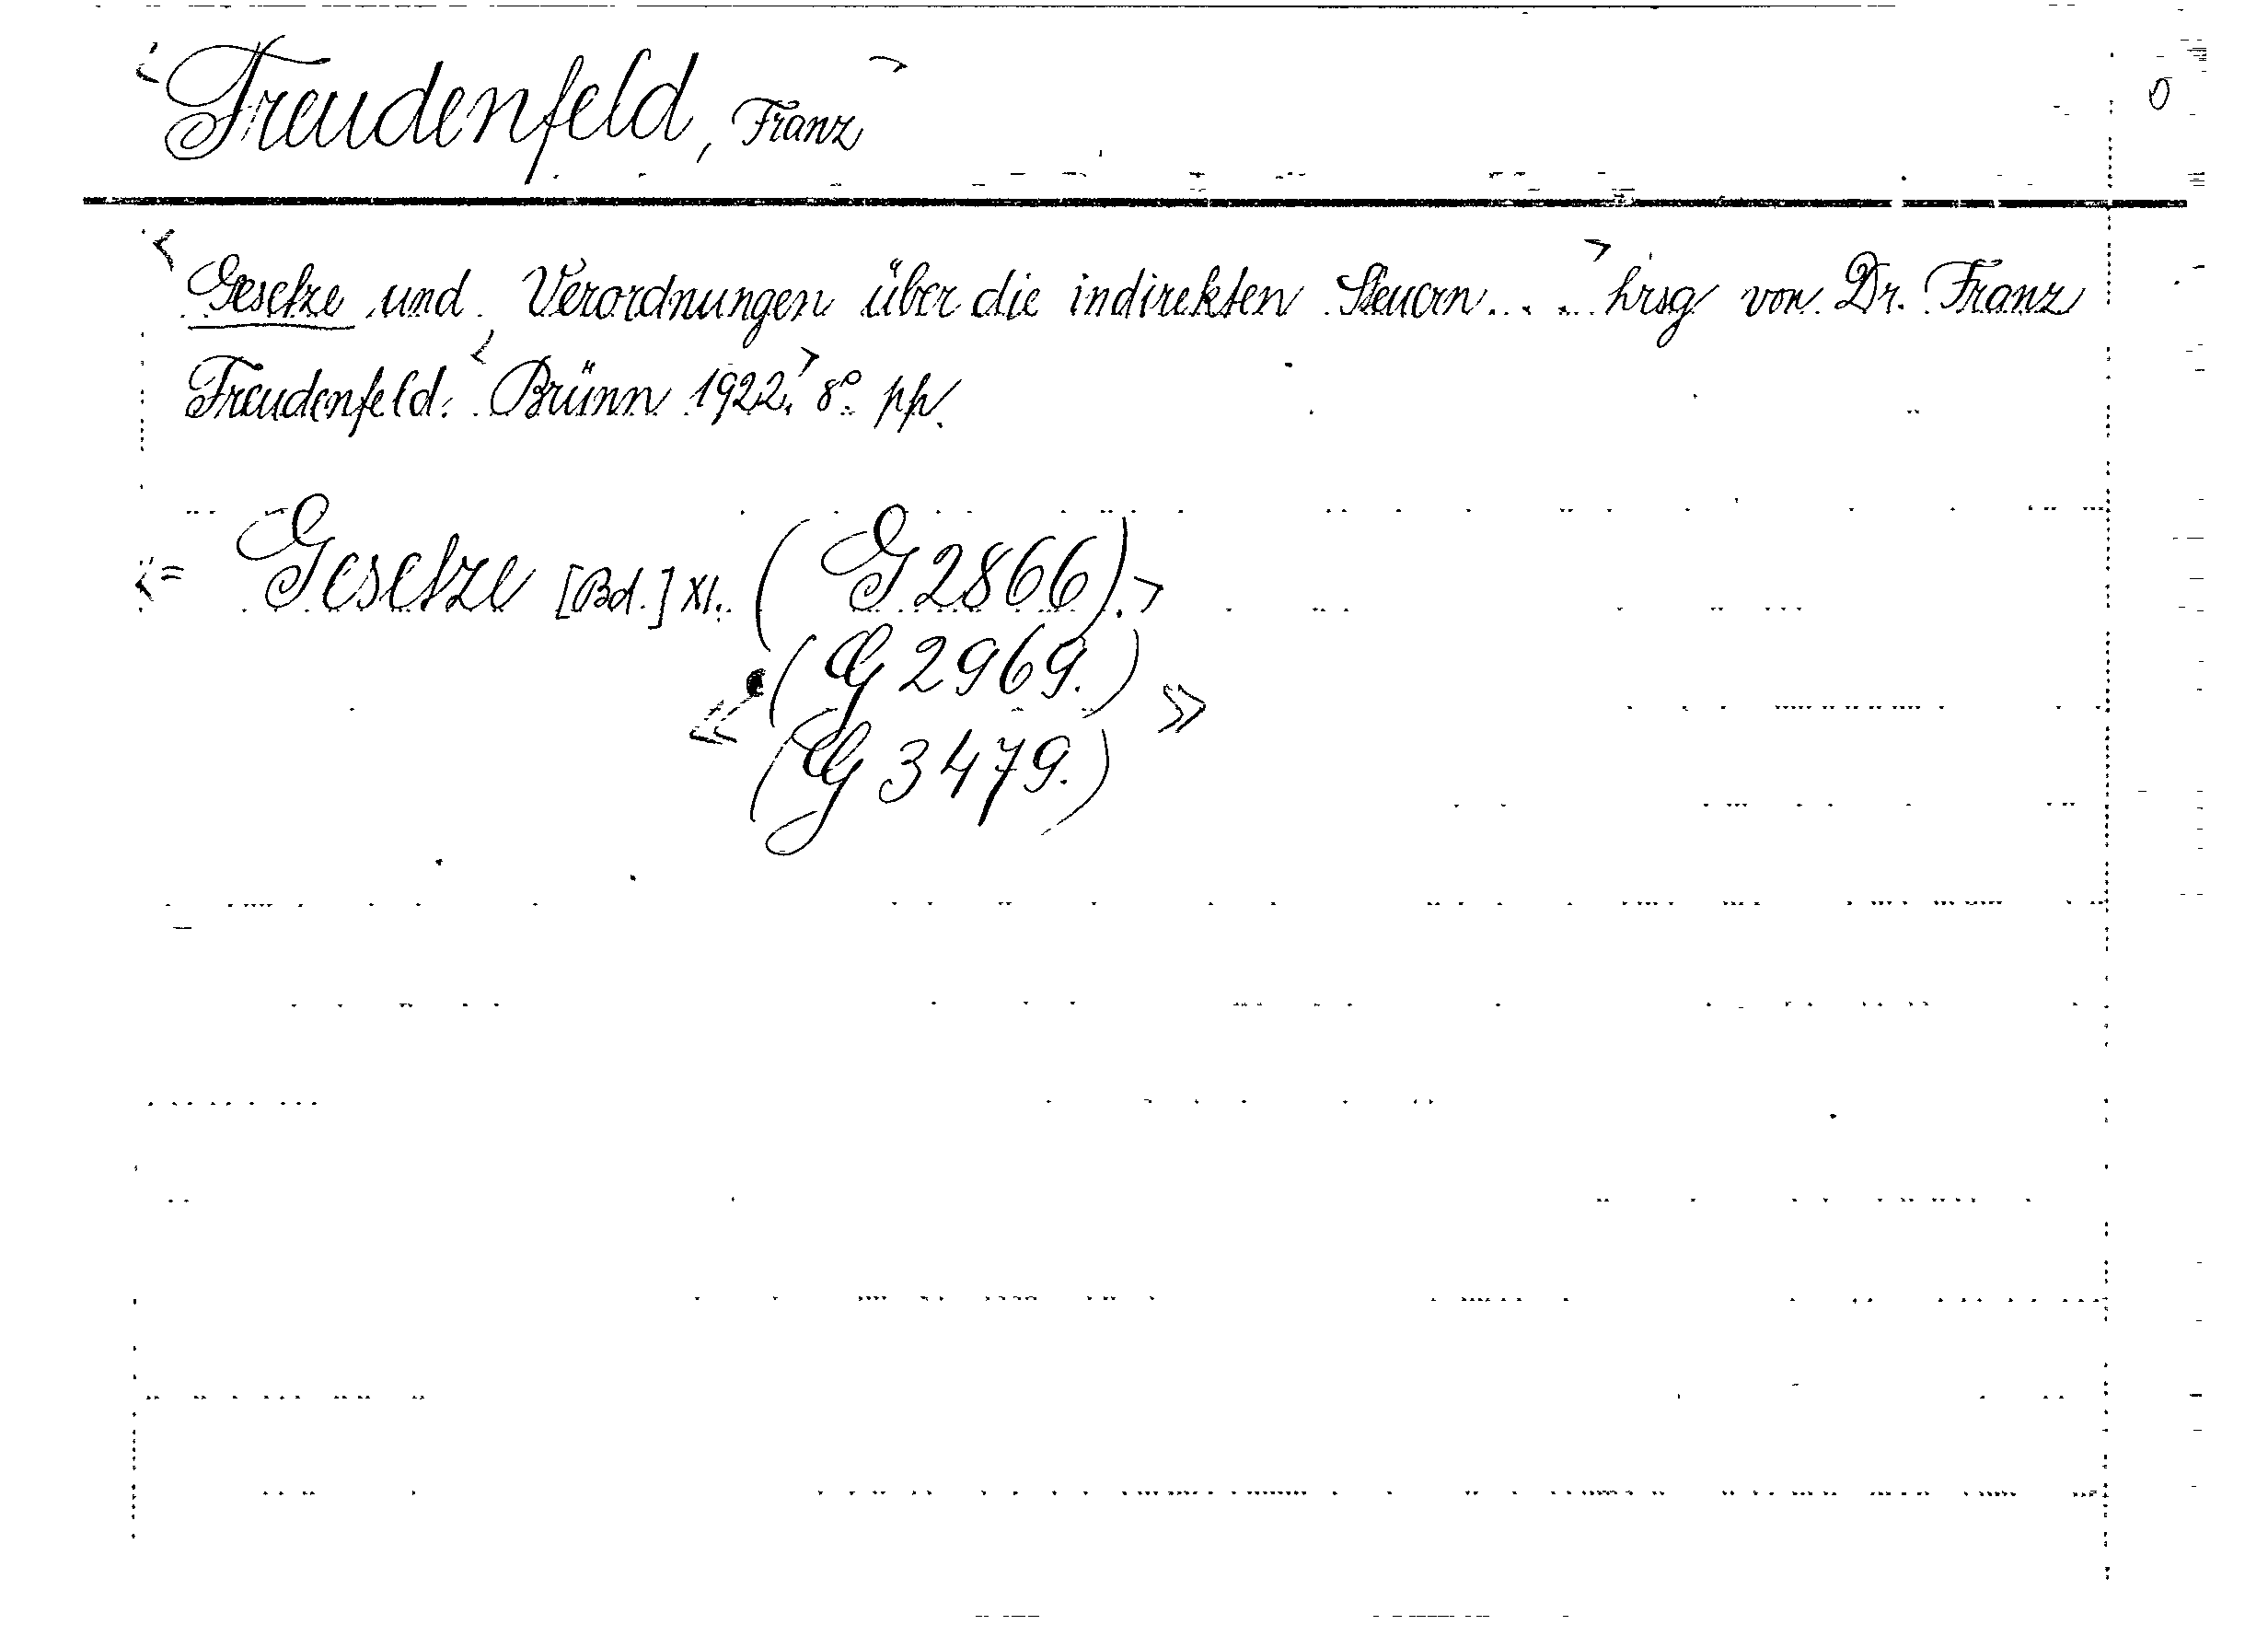 Freudenfeld, Franz
Gesetze und Verordnungen über die indirekten Steuern.... hrsg von Dr. Franz
Freudenfeld. Brünn 1922. 8° pp.
= Gesetze [Bd.] XI. (G 2866).
(G 2969.)
(G 3479.)